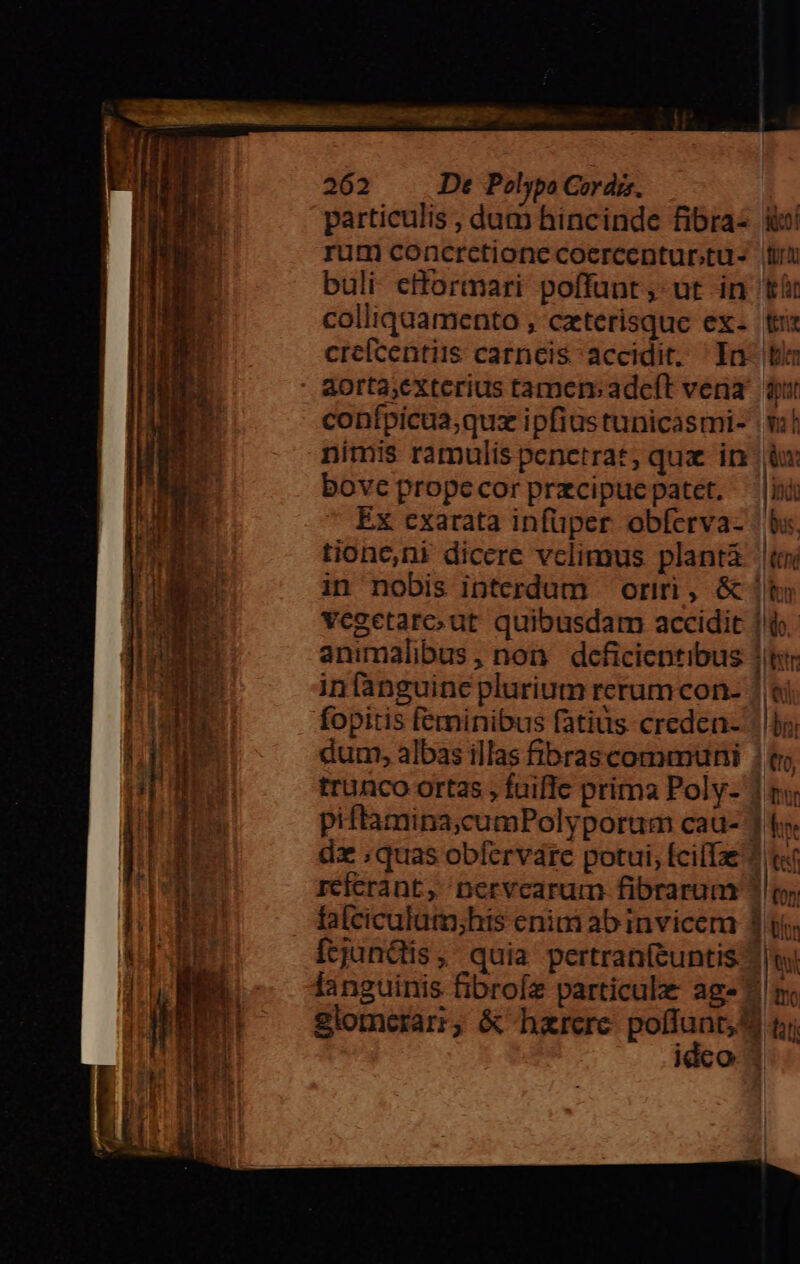 262 De Polypo Cordis.
particulis, dum hincinde fibra-
rum concretione coercentur, tu-
buli efformari poſſunt, ut in
colliquamento, cæteriſque ex-
creſcentiis carneis accidit. In
aorta, exterius tamen, adeſt vena
conſpicua, quæ ipſius tunicas mi-
nimis ramulis penetrat, quæ in
bove prope cor præcipue patet.
Ex exarata inſuper obſerva-
tione, ni dicere velimus plantā
in nobis interdum oriri, &
vegetare, ut quibusdam accidit
animalibus, non deficientibus
in ſanguine plurium rerum con-
ſopitis ſeminibus ſatiùs creden-
dum, albas illas fibras communi
trunco ortas, fuiſſe prima Poly-
pi ſtamina, cum Polyporum cau-
dæ, quas obſervare potui, ſciſſæ
referant, nervearum fibrarum
faſciculum, his enim ab invicem
ſejunctis, quia pertranſeuntis
ſanguinis fibroſæ particulæ ag-
glomerari, & hærere poſſunt,
ideo